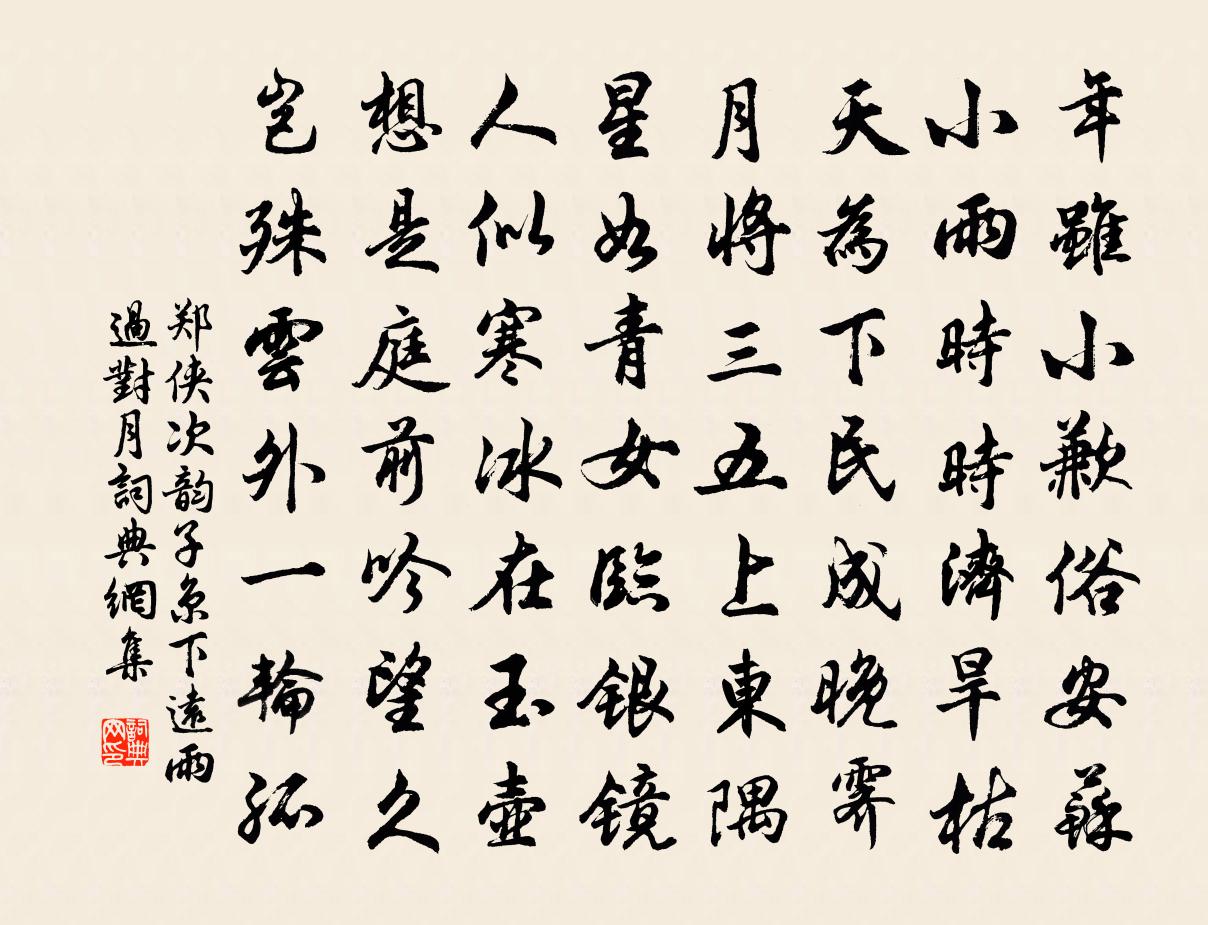 年雖小歉俗安蘇
小雨時時濟旱枯
天為下民成晚霽
月將三五上東隅
星如青女臨銀鏡
人似寒冰在玉壺
想是庭前吟望久
豈殊雲外一輪孤
郑侠次韵子京下遠雨
過對月詞典網集
詞典
网印